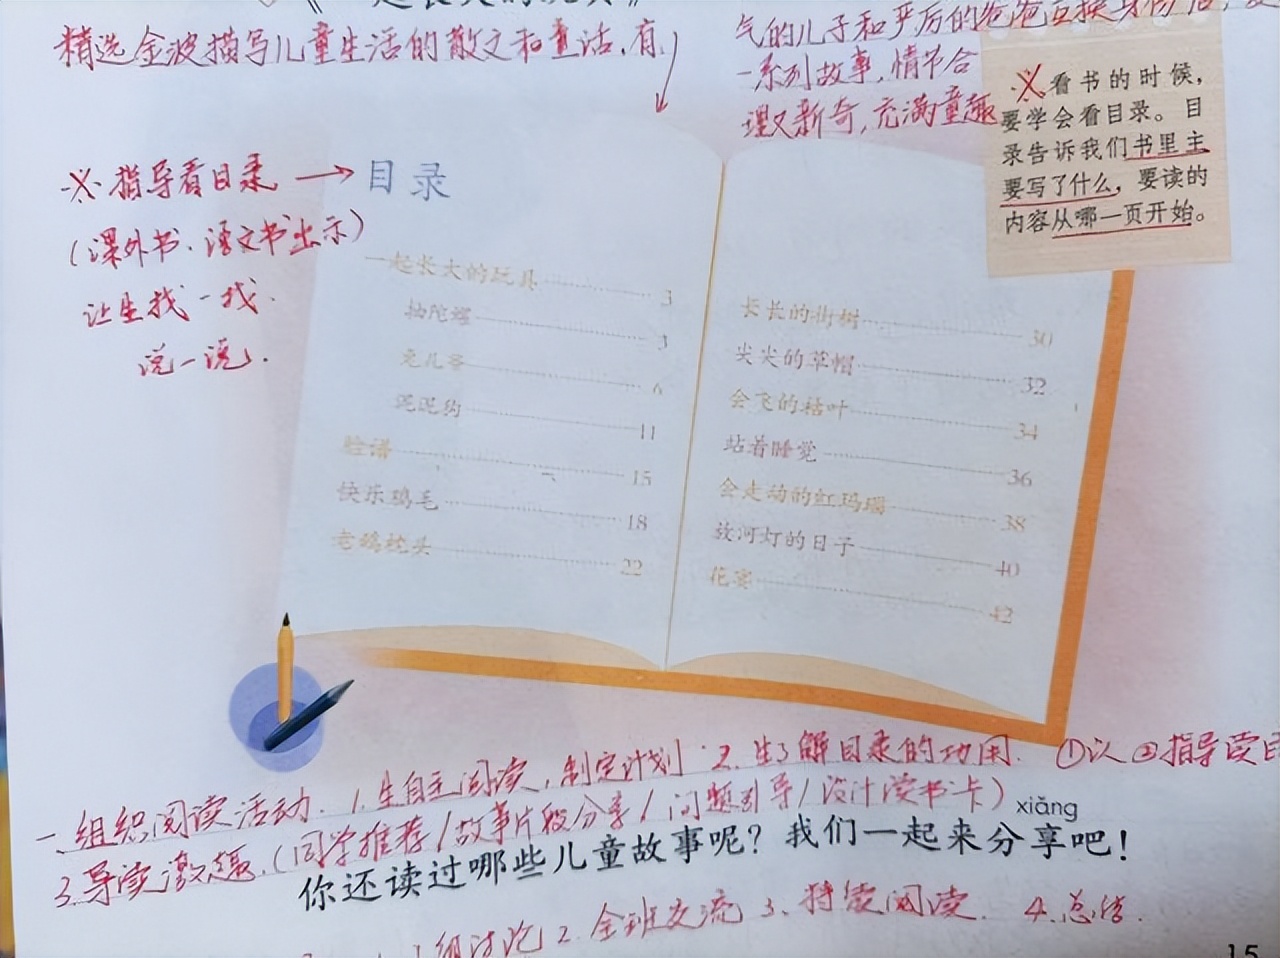 精选金波描写儿童生活的散文和童话,有
气的儿子和严厉的爸爸互换身份后,
一系列故事,情节合
理又新奇,充满童趣
※看书的时候,
要学会看目录。目
录告诉我们书里主
要写了什么,要读的
内容从哪一页开始。
※指导看目录 → 目录
(课外书、语文书出示)
让生找一找.
说一说.
一起长大的玩具 3
抽陀螺 3
兔儿爷 6
泥泥狗 11
脸谱 15
快乐鸡毛 18
老鸹枕头 22
长长的街树 30
尖尖的草帽 32
会飞的枯叶 34
站着睡觉 36
会走动的红玛瑙 38
放河灯的日子 40
花宴 42
一、组织阅读活动. 1.生自主阅读,制定计划 2.生了解目录的功用. ①认②指导读目
3.导读激趣.(同学推荐/故事片段分享/问题引导/设计读书卡)
xiǎng
你还读过哪些儿童故事呢?我们一起来分享吧!
1.组讨论 2.全班交流 3.持续阅读. 4.总结.
15